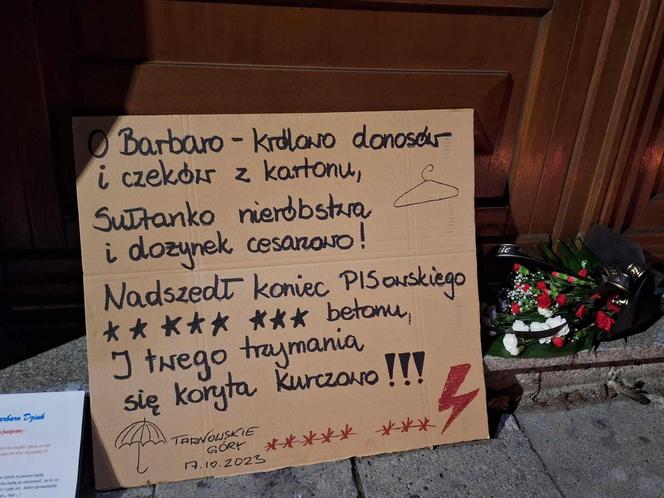 O Barbaro - królowo donosów
i czeków z kartonu,
Sułtanko nieróbstwa
i dożynek cesarzowo!
Nadszedł koniec PISowskiego
** *** *** betonu,
I twego trzymania
się koryta kurczowo!!!
TARNOWSKIE
GÓRY
17.10.2023
***** ***
Barbaro Dziuk